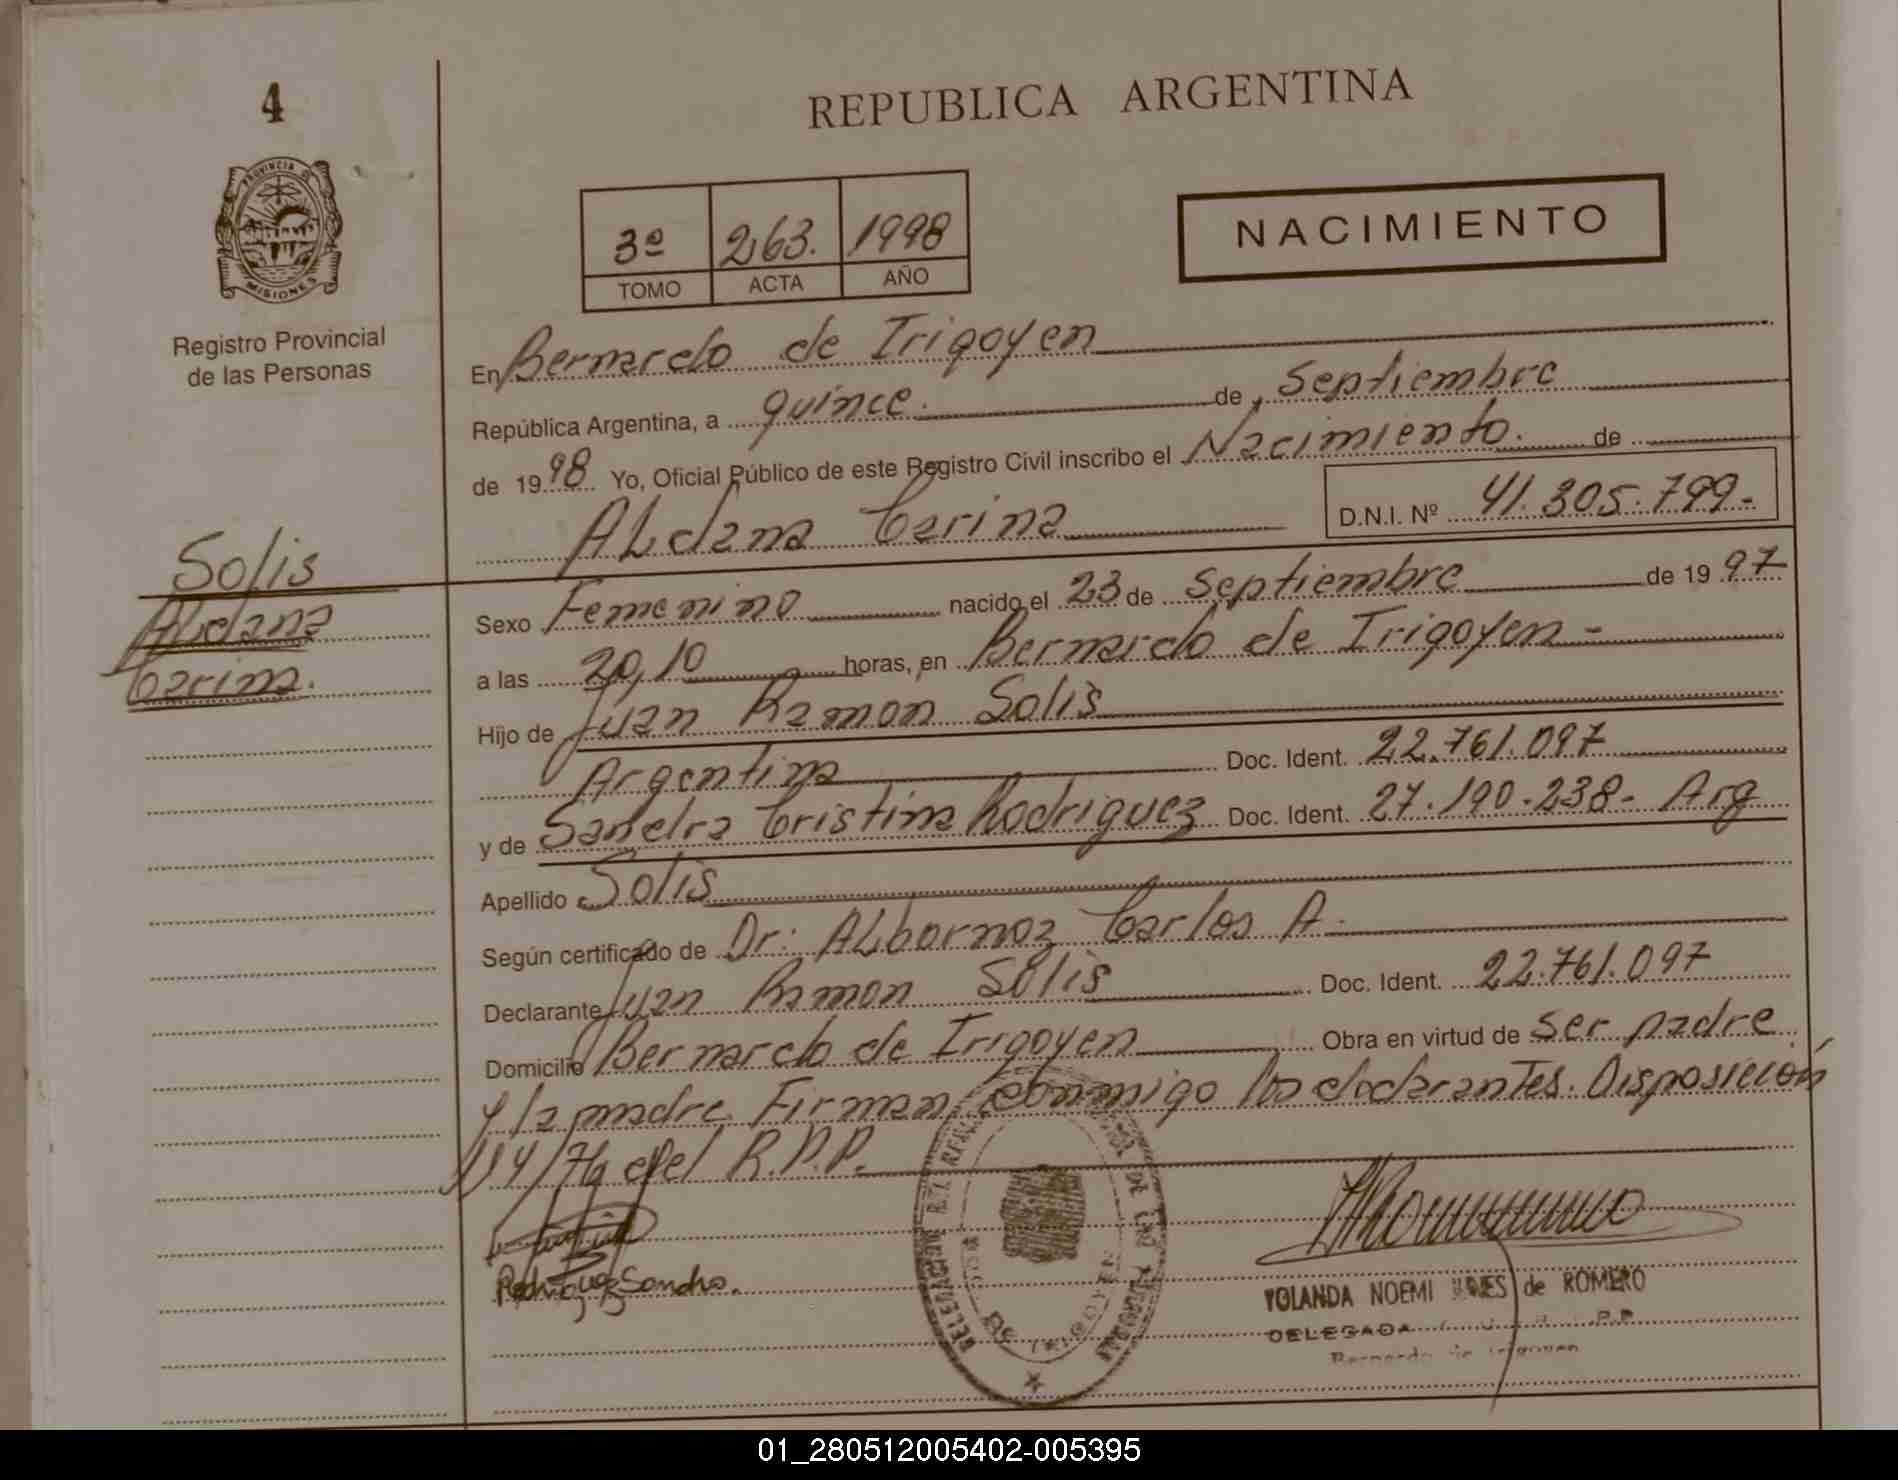 4
REPUBLICA ARGENTINA
PROVINCIA DE
MISIONES
Registro Provincial
de las Personas
3º 263. 1998
TOMO ACTA AÑO
NACIMIENTO
En Bernardo de Irigoyen
República Argentina, a quince. de Septiembre
de 1998 Yo, Oficial Público de este Registro Civil inscribo el Nacimiento. de
Aldana Carina D.N.I. Nº 41.305.799-
Solis
Aldana
Carina.
Sexo Femenino nacido el 23 de Septiembre de 1997
a las 20,10 horas, en Bernardo de Irigoyen -
Hijo de Juan Ramon Solis
Argentina Doc. Ident. 22.761.097
y de Sandra Cristina Rodriguez Doc. Ident. 27.190.238- Arg
Apellido Solis
Según certificado de Dr: Albornoz Carlos A.
Declarante Juan Ramon Solis Doc. Ident. 22.761.097
Domicilio Bernardo de Irigoyen Obra en virtud de ser padre
y la madre Firman conmigo los declarantes. Disposición
114/79 del R.P.P.
Rodriguez Sandra.
YOLANDA NOEMI de ROMERO
DELEGADA
Bernardo de Irigoyen
01_280512005402-005395